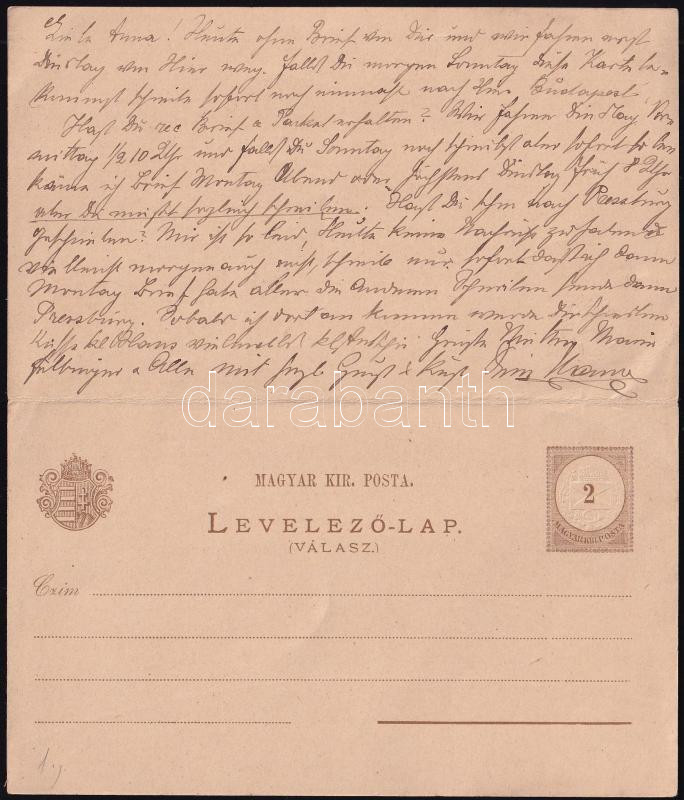 Liebe Anna! Heute ohne Brief von Dir und wir fahren erst
Dinstag von Hier weg. falls Du morgen Sonntag diese Karte be-
kommst schreibe sofort noch einmal nach Hier Budapest.
Hast Du rec Brief & Packet erhalten? Wir fahren Dinstag Vor-
mittag 1/2 10 Uhr und falls Du Sonntag noch schreibst aber sofort so be-
käme ich Brief Montag Abend oder höchstens Dinstag früh 8 Uhr
aber Du müsst sogleich schreiben. Hast Du schon nach Pressburg
geschrieben? Mir ist so leid, Heute keine Nachricht zu haben
vielleicht morgen auch nicht, schreib nur sofort dass ich dann
Montag Brief habe aller die anderen Schreiben sende dann
Pressburg. Sobald ich dort an komme werde Dir schreiben
Küsse kl Hans vielmals kl Grüsse Mutter Marie
& Alle mit herzl Gruss & Kuss Dein
darabanth
MAGYAR KIR. POSTA.
LEVELEZŐ-LAP.
(VÁLASZ.)
2
MAGYAR KIR. POSTA
Czim